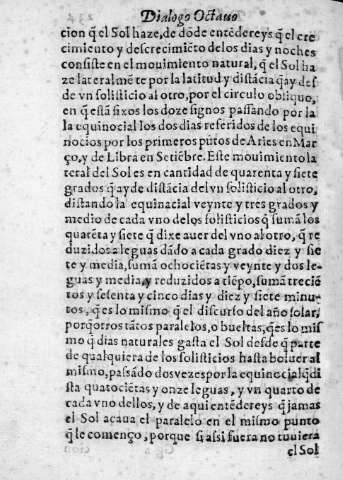 Dialogo Octauo
cion q̃ el Sol haze, de dõde entẽdereys q̃ el cre
cimiento y descrecimiẽto delos dias y noches
consiste en el mouimiento natural, q̃ el Sol ha
ze lateralmẽte por la latitud y distãcia q̃ ay des
de vn solisticio al otro, por el circulo obliquo,
en q̃ estã fixos los doze signos passando por la
la equinocial los dos dias referidos de los equi
nocios por los primeros pũtos de Aries en Mar
ço, y de Libra en Setiẽbre. Este mouimiento la
teral del Sol es en cantidad de quarenta y siete
grados q̃ ay de distãcia del vn solisticio al otro,
distando la equinacial veynte y tres grados y
medio de cada vno delos solisticios q̃ sumã los
quarẽta y siete q̃ dixe auer del vno al otro, q̃ re
duzidos a leguas dãdo a cada grado diez y sie
te y media, sumã ochociẽtas y veynte y dos le-
guas y media, y reduzidos a tiẽpo, sumã treciẽ
tos y sesenta y cinco dias y diez y siete minu-
tos, q̃ es lo mismo q̃ el discurso del año solar,
porq̃ otros tãtos paralelos, o bueltas, q̃ es lo mis
mo q̃ dias naturales gasta el Sol desde q̃ parte
de qualquiera de los solisticios hasta boluer al
mismo, passãdo dos vezes por la equinocial q̃ di
sta quatociẽtas y onze leguas, y vn quarto de
cada vno dellos, y de aqui entẽdereys q̃ jamas
el Sol acaua el paralelo en el mismo punto
q̃ le començo, porque si assi fuera no tuuiera
el Sol